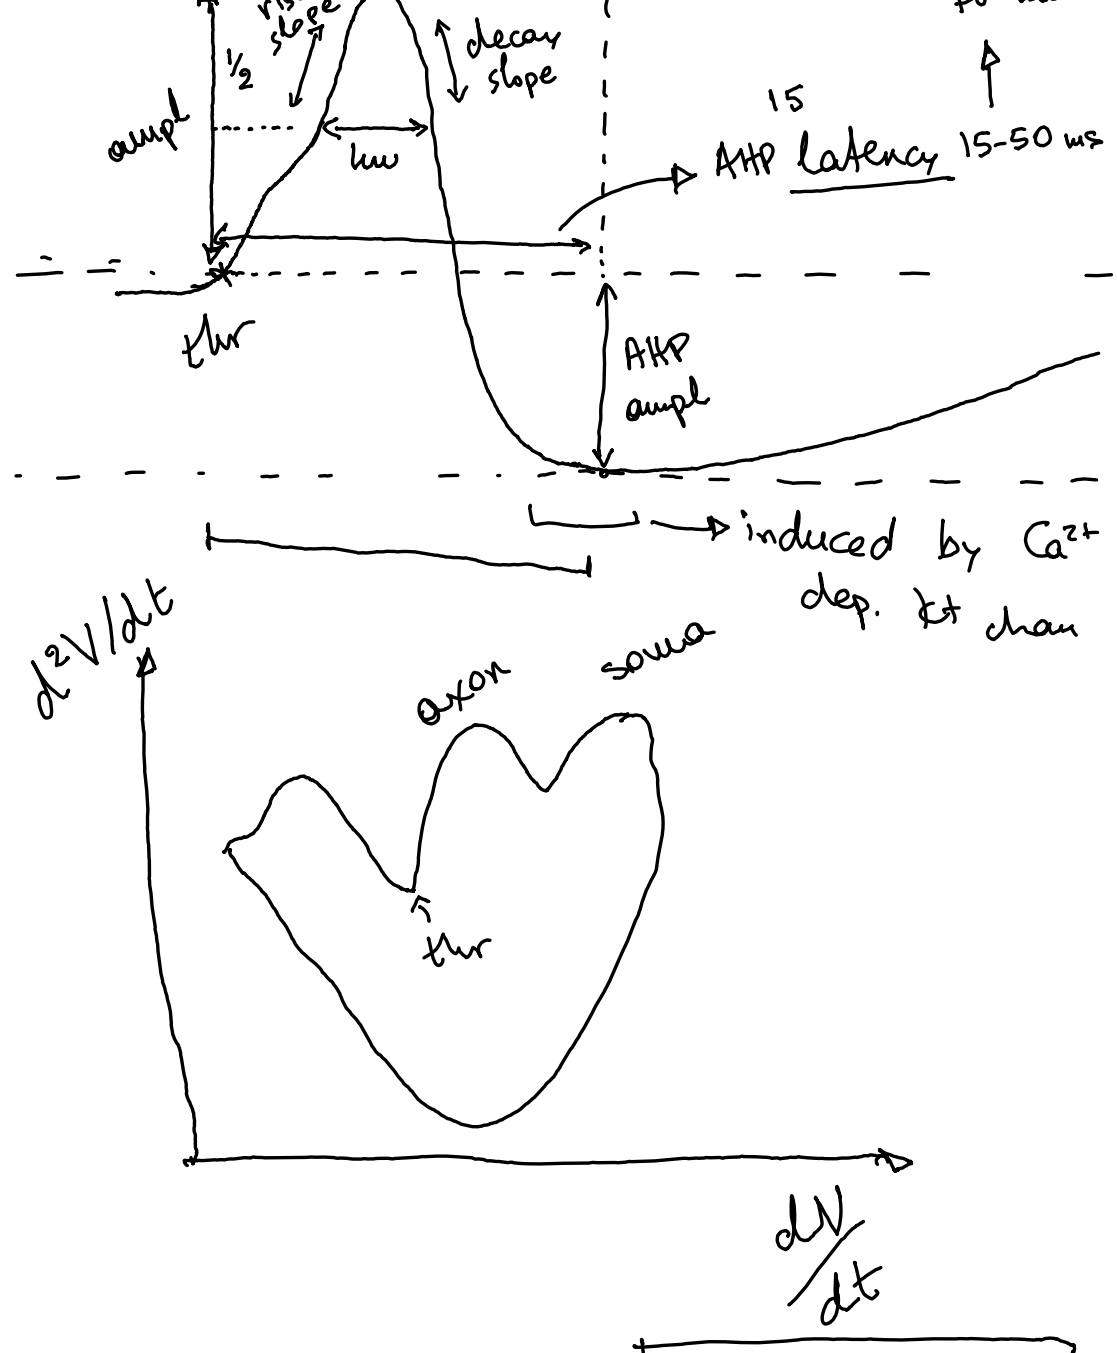 slope
1/2
decay
slope
ampl
hw
15
AHP latency 15-50 ms
thr
AHP
ampl
induced by Ca²⁺
dep. K+ chan
d²V/dt
axon
soma
thr
dV/dt